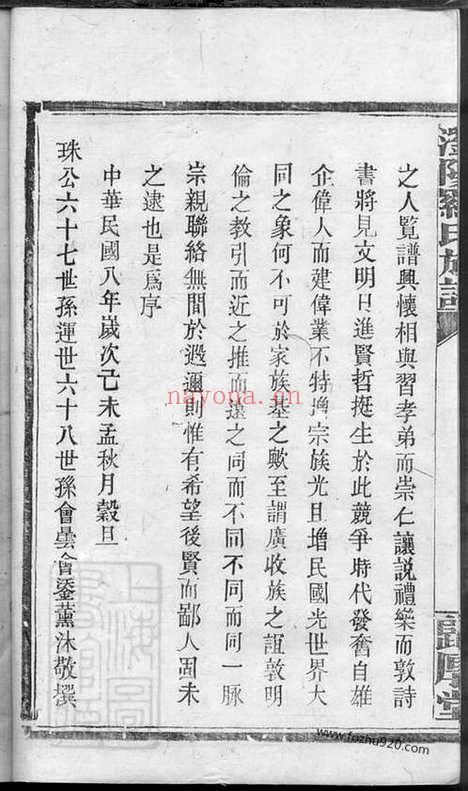 羅氏族譜
之人覧譜興懷相與習孝弟而崇仁讓説禮樂而敦詩
書將見文明日進賢哲挺生於此競爭時代發奮自雄
企偉人而建偉業不特增宗族光且增民國光世界大
同之象何不可於家族基之歟至謂廣收族之誼敦明
倫之教引而近之推而遠之同而不同不同而同一脉
宗親聯絡無間於遐邇則惟有希望後賢而鄙人固未
之逮也是爲序
中華民國八年歲次己未孟秋月穀旦
珠公六十七世孫運世六十八世孫會曇會鋆薰沐敬撰
nayona.cn
www.fozhu920.com